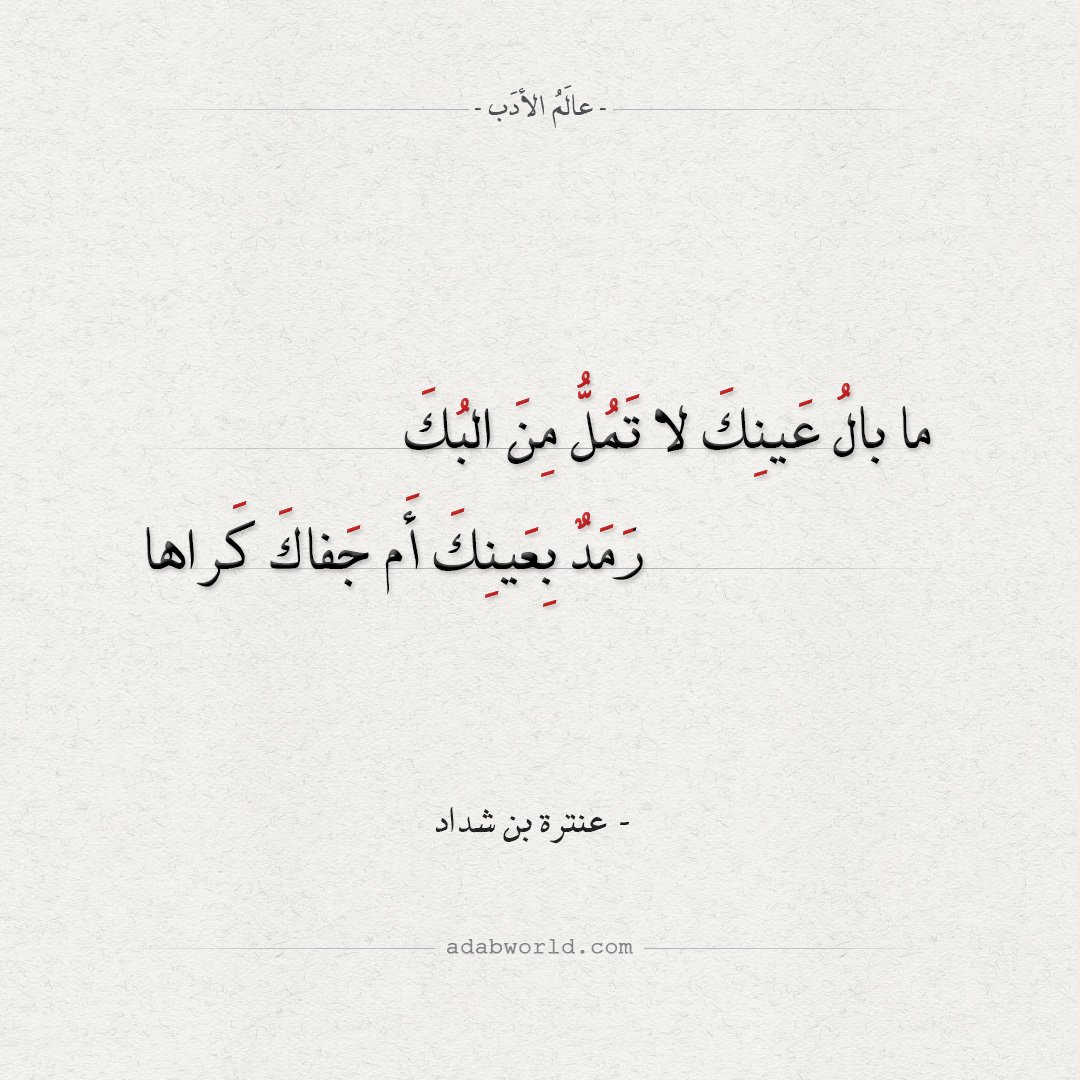 - عالَمُ الأدَب -
ما بالُ عَينِكَ لا تَمُلُّ مِنَ البُكَ
رَمَدٌ بِعَينِكَ أَم جَفاكَ كَراها
- عنترة بن شداد
adabworld.com